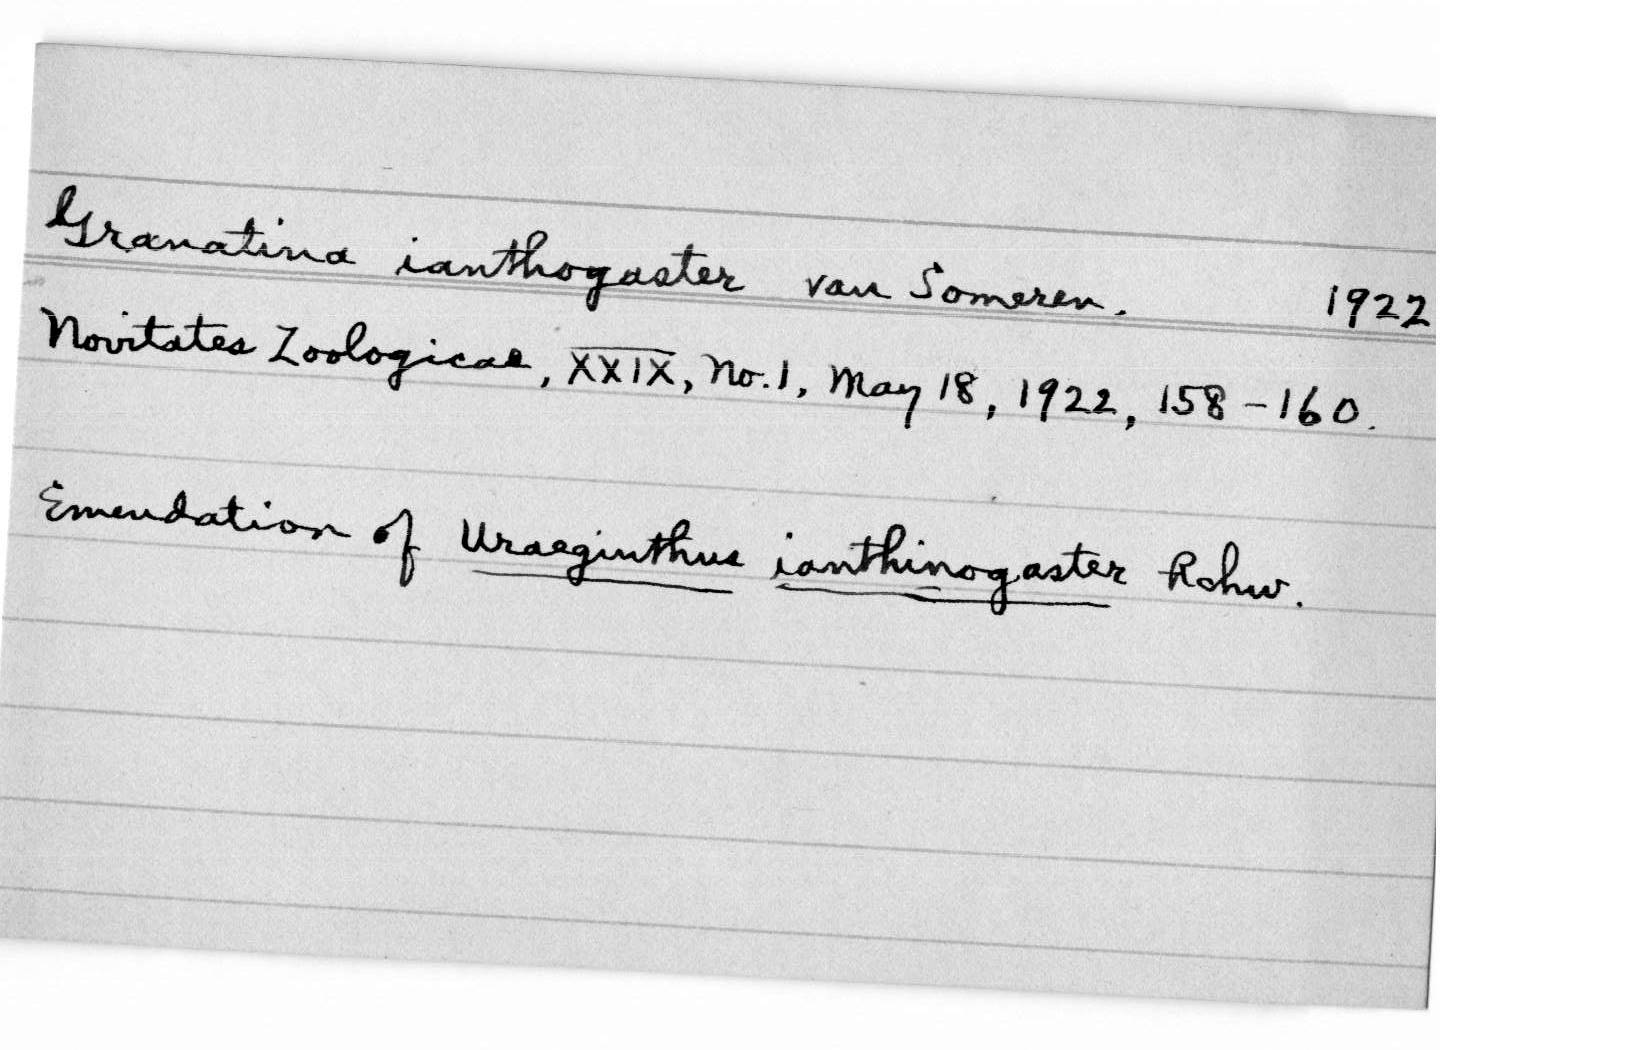 Granatina ianthogaster van Someren. 1922
Novitates Zoologicae, XXIX, No. 1, May 18, 1922, 158-160.
Emendation of Uraeginthus ianthinogaster Rchw.